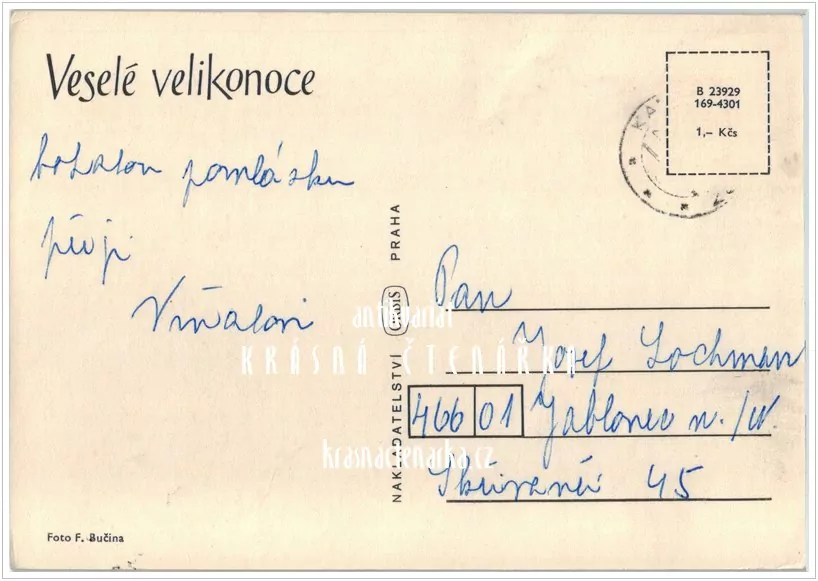 Veselé velikonoce
B 23929
169-4301
1,– Kčs
bohatou pomlásku
přejí
Pan
Josef Lochman
466 01 Jablonec n./N.
45
NAKLADATELSTVÍ ORBIS PRAHA
antikvariát
KRÁSNÁ ČTENÁŘKA
krasnactenarka.cz
Foto F. Bučina